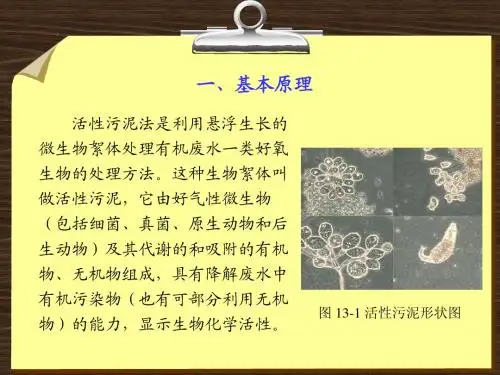 一、基本原理
活性污泥法是利用悬浮生长的
微生物絮体处理有机废水一类好氧
生物的处理方法。这种生物絮体叫
做活性污泥，它由好气性微生物
（包括细菌、真菌、原生动物和后
生动物）及其代谢的和吸附的有机
物、无机物组成，具有降解废水中
有机污染物（也有可部分利用无机
物）的能力，显示生物化学活性。
图 13-1 活性污泥形状图